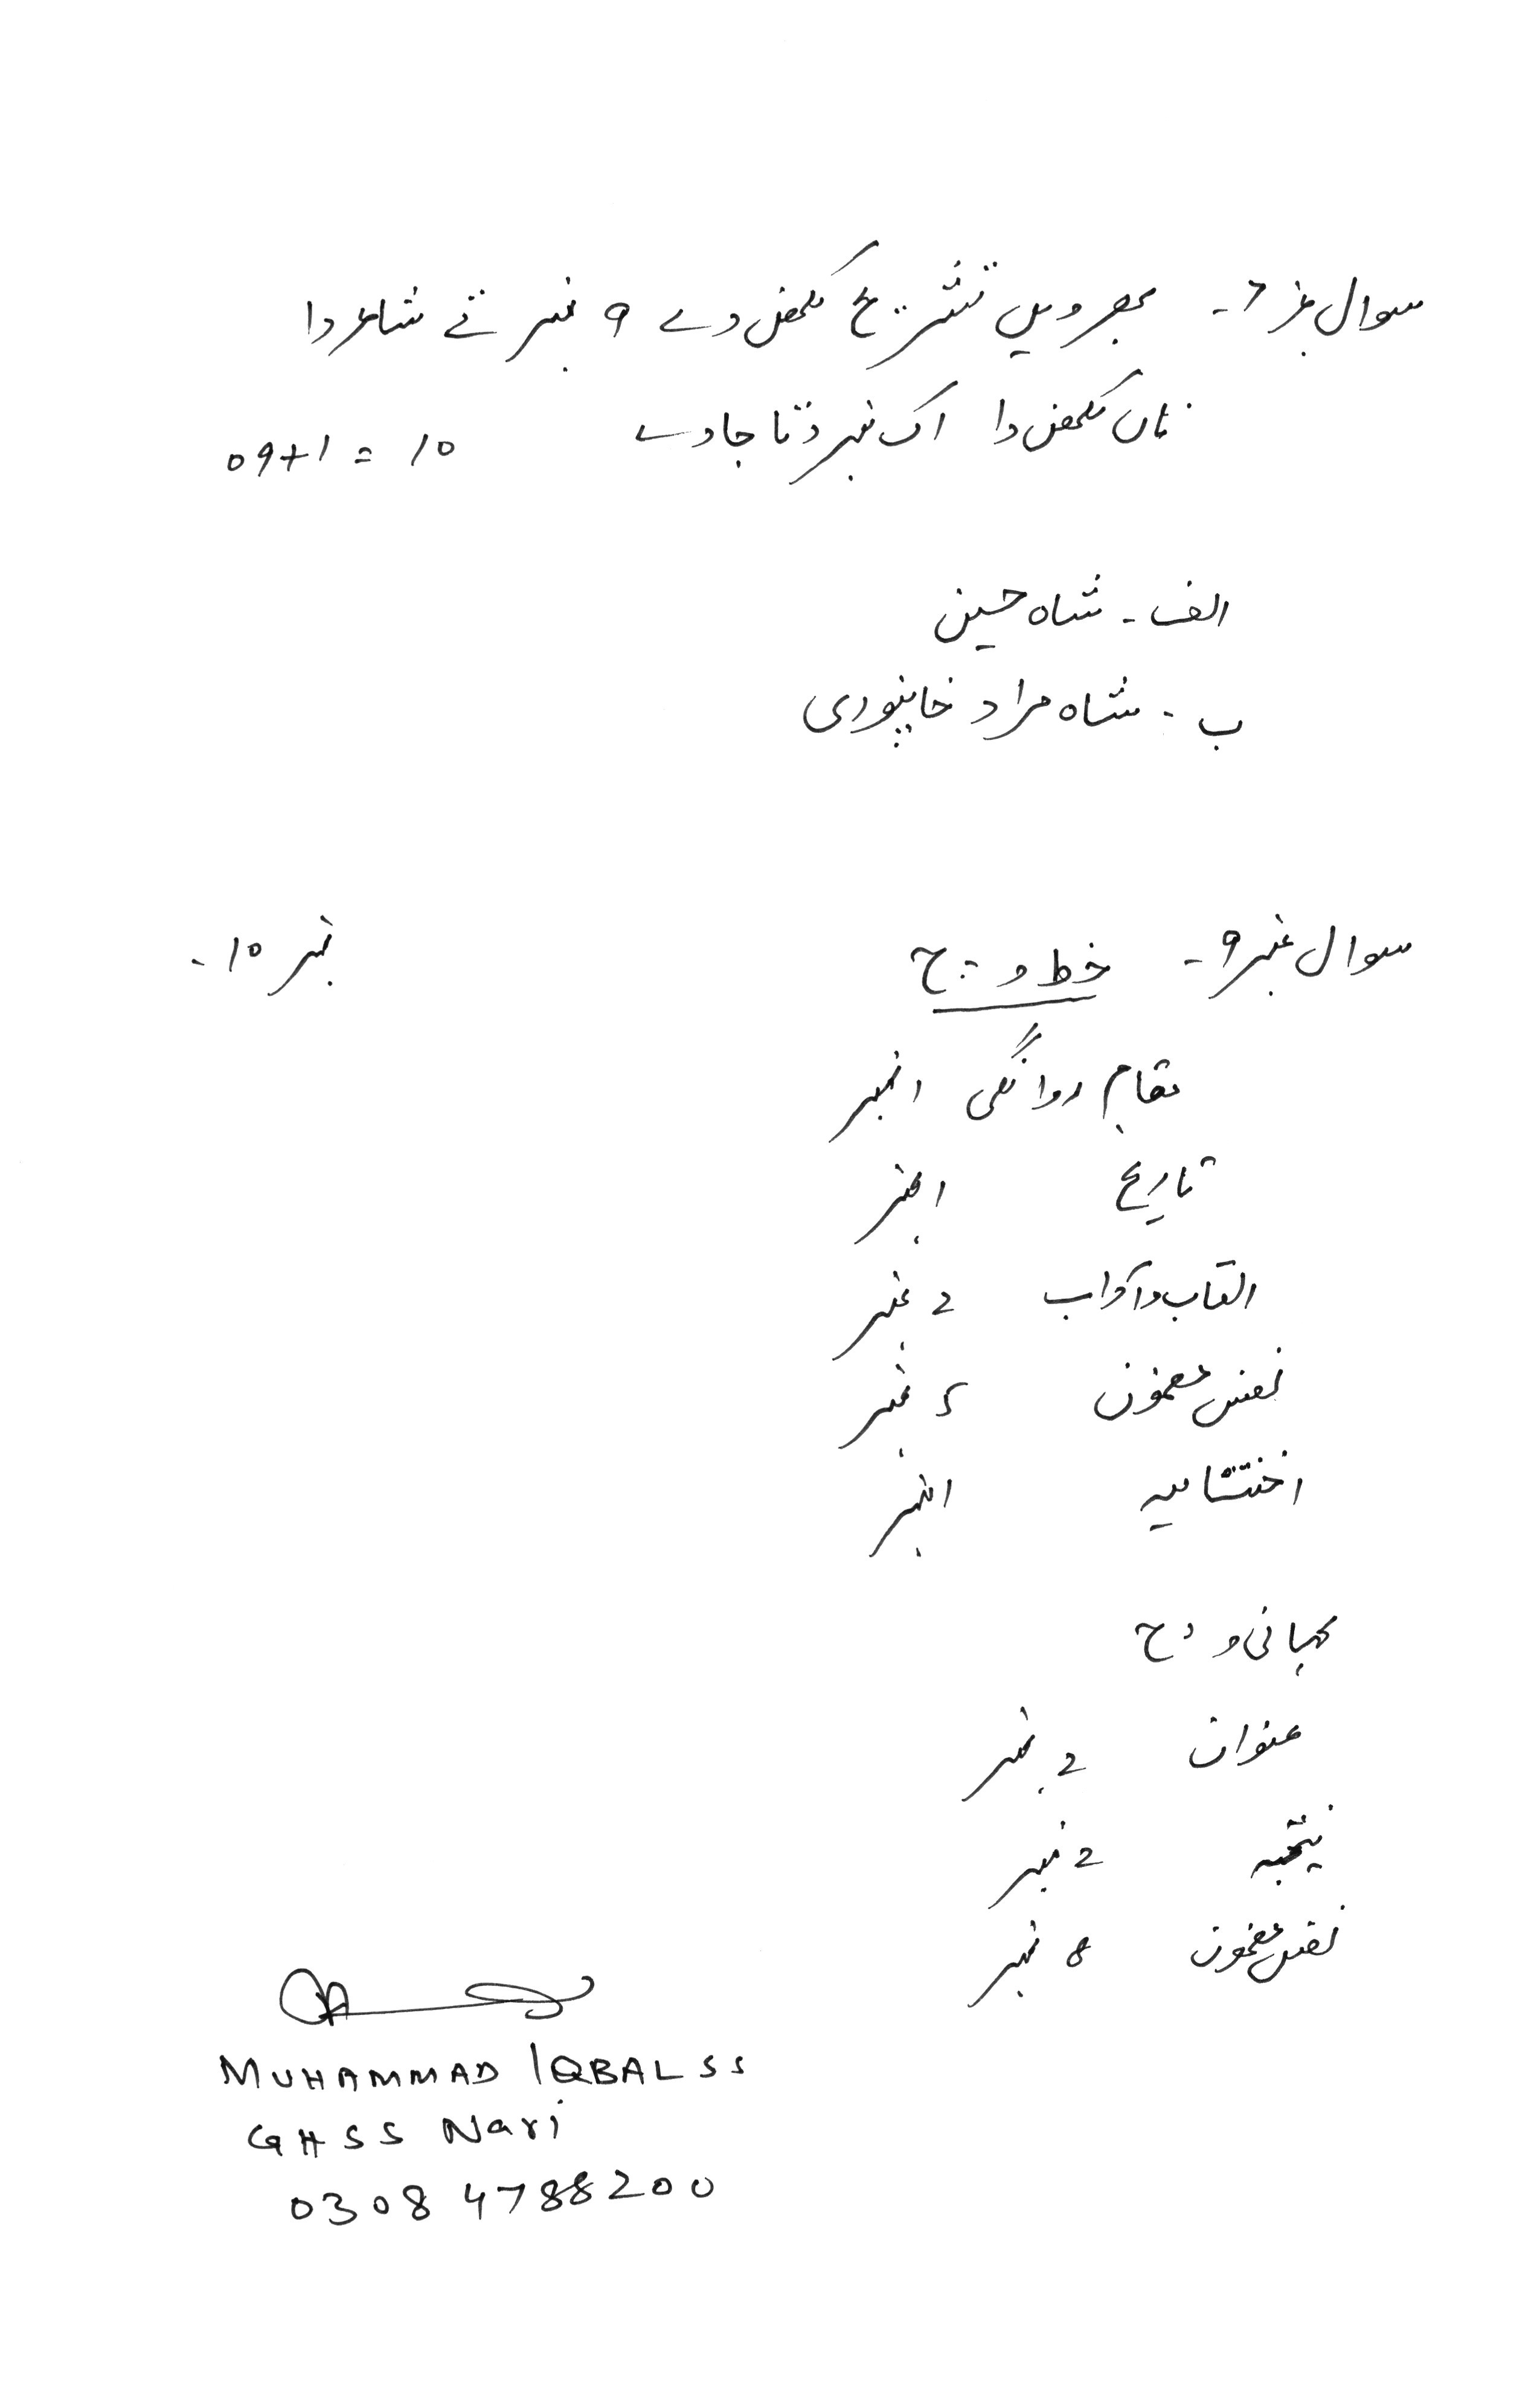 سوال نمبر 6۔ بھرویں تشریح لکھن دے 9 نمبر تے شاعر دا
ناں لکھن دا اک نمبر دتا جاوے 09+1 = 10
الف۔ شاہ حسین
ب۔ شاہ مراد خانپوری
سوال نمبر 9۔ خط وچ نمبر 10۔
مقام روانگی 1 نمبر
تاریخ 1 نمبر
القاب و آداب 2 نمبر
نفس مضمون 5 نمبر
اختتامیہ 1 نمبر
کہانی وچ
عنوان 2 نمبر
نتیجہ 2 نمبر
نفس مضمون 6 نمبر
MUHAMMAD IQBAL SS
GHSS Nari
0308 4788200